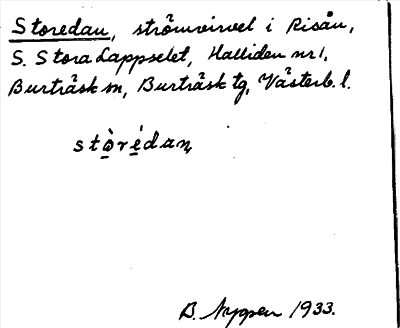 Storedan, strömvirvel i Risån,
S. Stora Lappselet, Halliden nr 1,
Burträsk sn, Burträsk tg, Västerb. l.
stòrédan
B. Nyppen 1933.